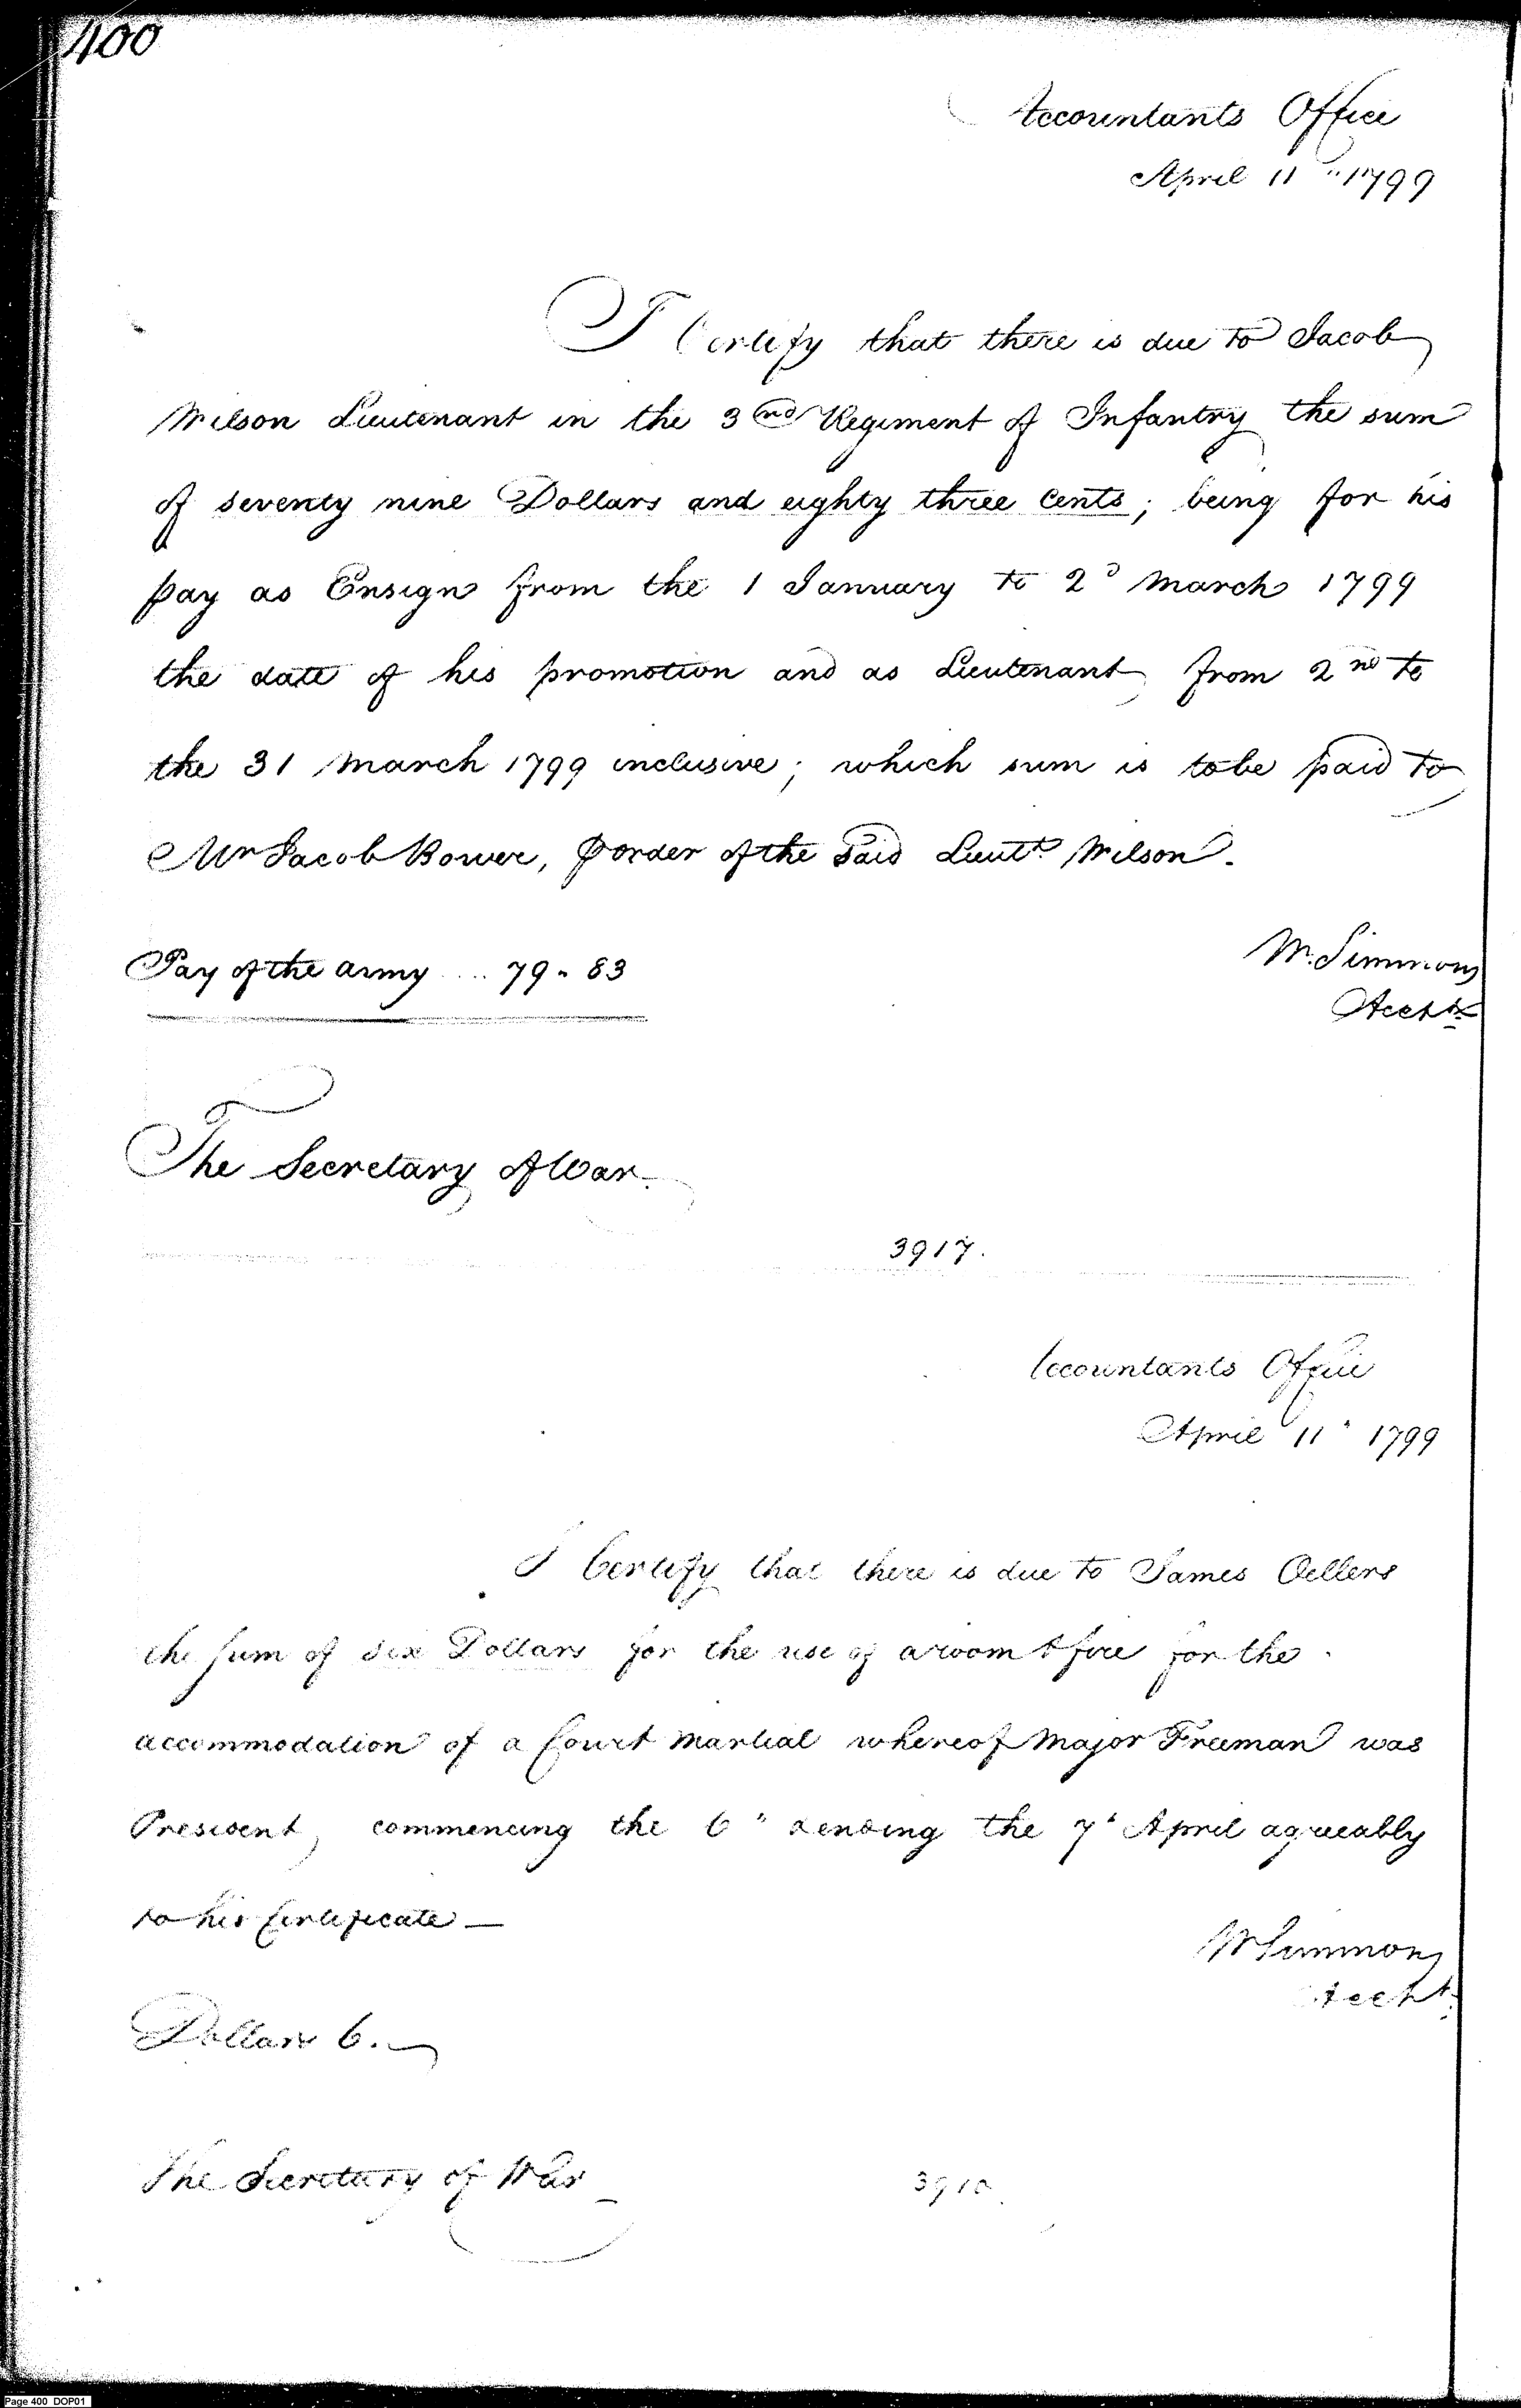 400
Accountants Office
April 11" 1799
I Certify that there is due to Jacob
Wilson Lieutenant in the 3nd Regiment of Infantry the sum
of seventy nine Dollars and eighty three cents; being for his
pay as Ensign from the 1 January to 2d March 1799
the date of his promotion and as Lieutenant from 2nd to
the 31 March 1799 inclusive; which sum is to be paid to
Mr Jacob Bower, ⅌ order of the said Lieutt Wilson.
Pay of the army .... 79.. 83
W. Simmons
Acctt
The Secretary of War.
3917.
Accountants Office
April 11" 1799
I Certify that there is due to James Oellers
the sum of six Dollars for the use of a room & fire for the
accommodation of a Court Martial whereof Major Freeman was
President, commencing the 6" & ending the 7t April agreeably
to his Certificate —
W Simmons
Acctt
Dollars 6.—
The Secretary of War
Page 400 DOP01